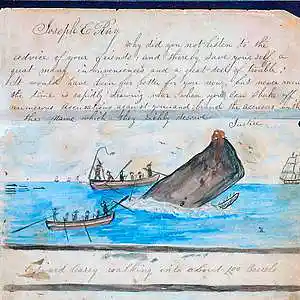 Joseph E Ray
Why did you not listen to the
advice of your friends, and thereby save yourself a
great many inconveniences and a great deal of trouble,
it would have been far better for you now, but never mind
the time is rapidly drawing near when you can shake off
numerous accusations against you and brand the accusers with
the Name which they richly deserve
Justice
Edward Carey walking into about 100 barrels